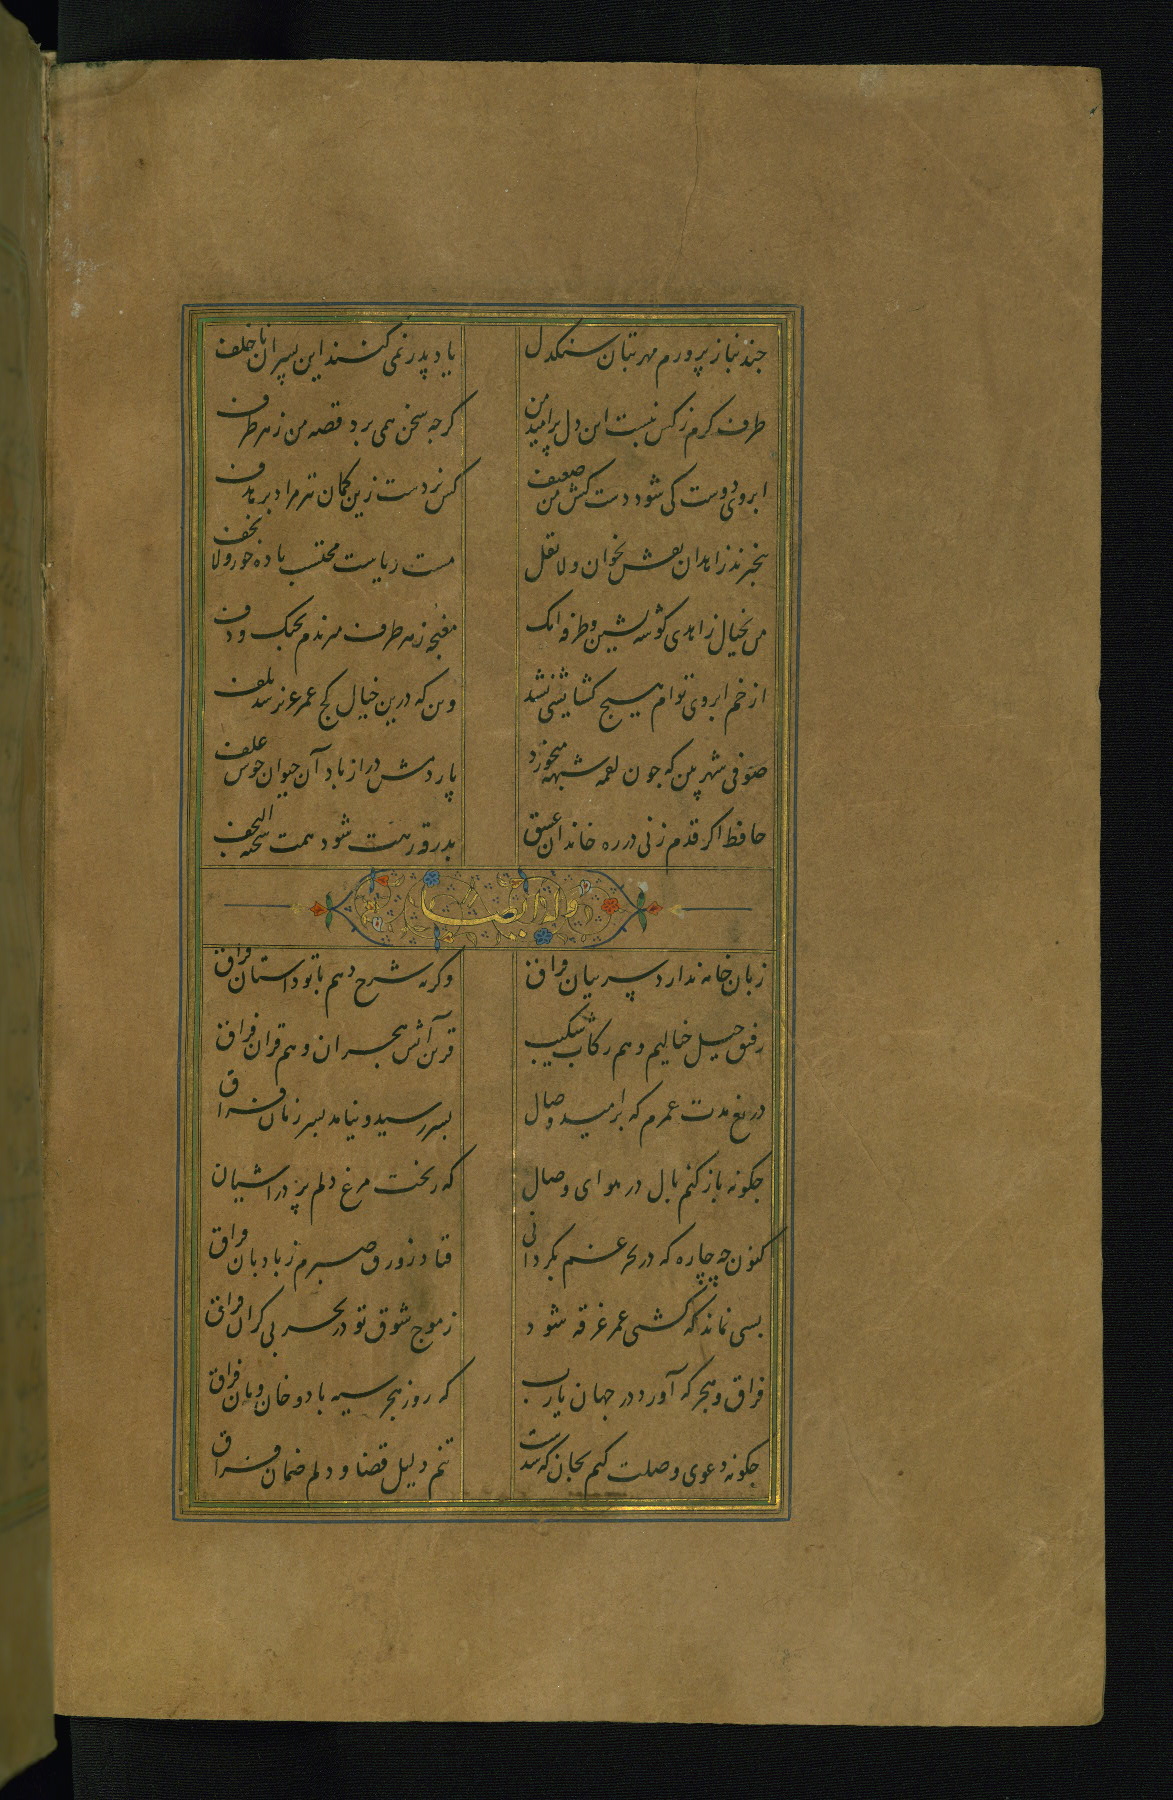 جند بناز پرورم مهر بتان سنکدل یاد پدر نمی کنند این پسران ناخلف
طرف کرم ز کس نبست این دل پر امید من کرجه سخن همی برد قصه من ز هر طرف
ابروی دوست کی شود دست کش من ضعیف کس نزدست زین کمان تیر مراد بر هدف
بیخبرند زاهدان نقش بخوان و لا تقل مست ریاست محتسب باده بخور و لا تخف
من بخیال زاهدی کوشه نشین و طرفه انک مغبجه ز هر طرف میزندم بچنک و دف
از خم ابروی توام هیچ کشایشی نشد وین که درین خیال کج عمر عزیز شد تلف
صوفی شهر بین که جون لقمه شبهه میخورد پاردمش دراز باد آن حیوان خوش علف
حافظ اکر قدم زنی در ره خاندان عشق بدرقه رهت شود همت شحنه النجف
وله ایضا
زبان خامه ندارد سر بیان فراق وکرنه شرح دهم با تو داستان فراق
رفیق خیل خالیم و هم رکاب شکیب قرین آتش هجران و هم قران فراق
دریغ مدت عمرم که بر امید وصال بسر رسید و نیامد بسر زمان فراق
جکونه باز کنم بال در هوای وصال که ریخت مرغ دلم پر در اشیان
کنون چه چاره که در بحر غم بکردانی فتاد زورق صبرم ز بادبان فراق
بسی نماند که کشتی عمر غرقه شود ز موج شوق تو در بحر بی کران فراق
فراق و هجر که آورد در جهان یارب که روز هجر سیه باد و خان و مان فراق
جکونه دعوی وصلت کنم بجان که شدست تنم دلیل قضا و دلم ضمان فراق